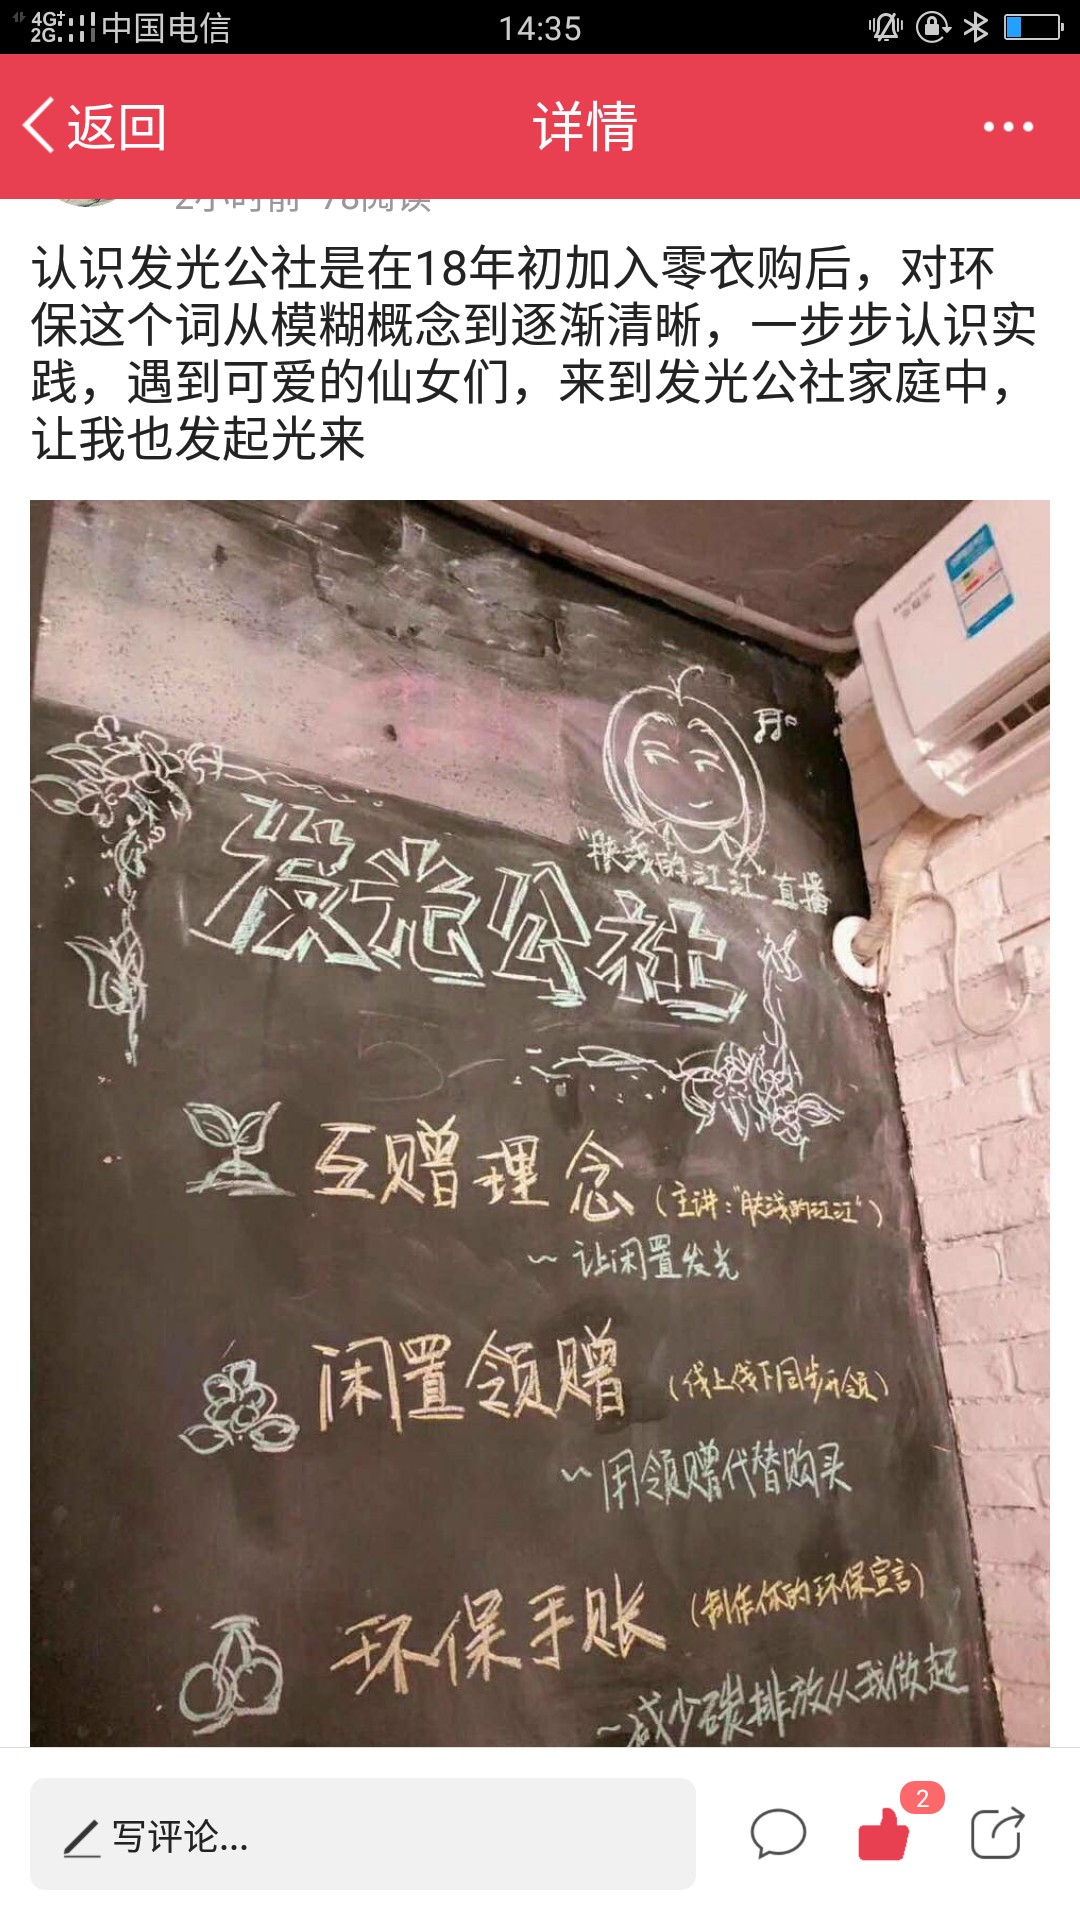 4G+
2G
中国电信
14:35
返回
详情
2小时前 78阅读
认识发光公社是在18年初加入零衣购后，对环
保这个词从模糊概念到逐渐清晰，一步步认识实
践，遇到可爱的仙女们，来到发光公社家庭中，
让我也发起光来
"肤浅的江江"直播
发光公社
互赠理念
（主讲："肤浅的江江"）
~ 让闲置发光
闲置领赠
（线上线下同步开领）
~ 用领赠代替购买
环保手账
（制作你的环保宣言）
~减少碳排放从我做起
写评论...
2